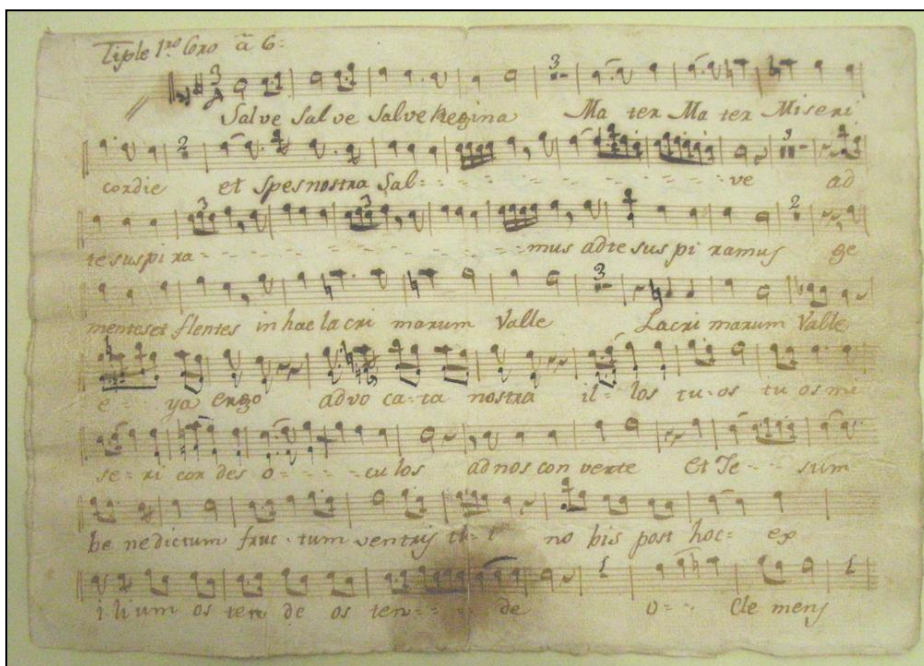 Tiple 1ro Coro a 6:
Salve Salve Salve Regina Ma ter Ma ter Miseri
cordie et spes nostra Sal- ve ad
te suspi ra- mus ad te sus pi ramus ge
mentes et flentes in hac la cri marum Valle Lacri marum Valle
e- ya ergo ad vo ca- ta nostra il- los tu- os tu os mi
se- ri cor des o- cu los ad nos con verte Et Je- sum
be nedictum fruc- tum ventris no bis post hoc- ex
i li um os ten de os ten- de o- Cle mens